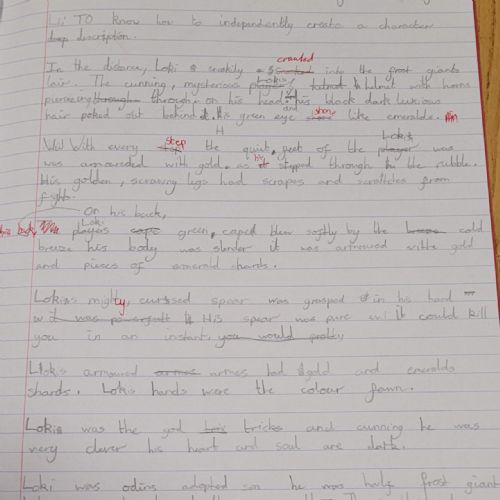 Li: TO know how to independently create a character
description.
In the distance, Loki sneakily crawled into the frost giants
lair. The cunning, mysterious Loki, helmet with horns
pierceing through on his head: and his black dark luxious
hair poked out behind it. His green eye shone like emeralds.
With every step the quiet, feet of the Loki was
was armoured with gold. as he stepped through the rubble.
His golden, scrawny legs had scrapes and scratches from
fights.
On his back,
his back, Loki green, caped blew softly by the cold
breeze his body was slender it was armoured with gold
and pieces of emerald shards.
Lokis mighty, cursed spear was grasped in his hand
it was powerfull His spear was pure evil it could kill
you in an instant, you would
Lokis armoured armes had gold and emeralds
shards. Lokis hands were the colour fawn.
Loki was the god tricks and cunning he was
very clever his heart and soul are dark.
Loki was odins adopted son he was half frost giant